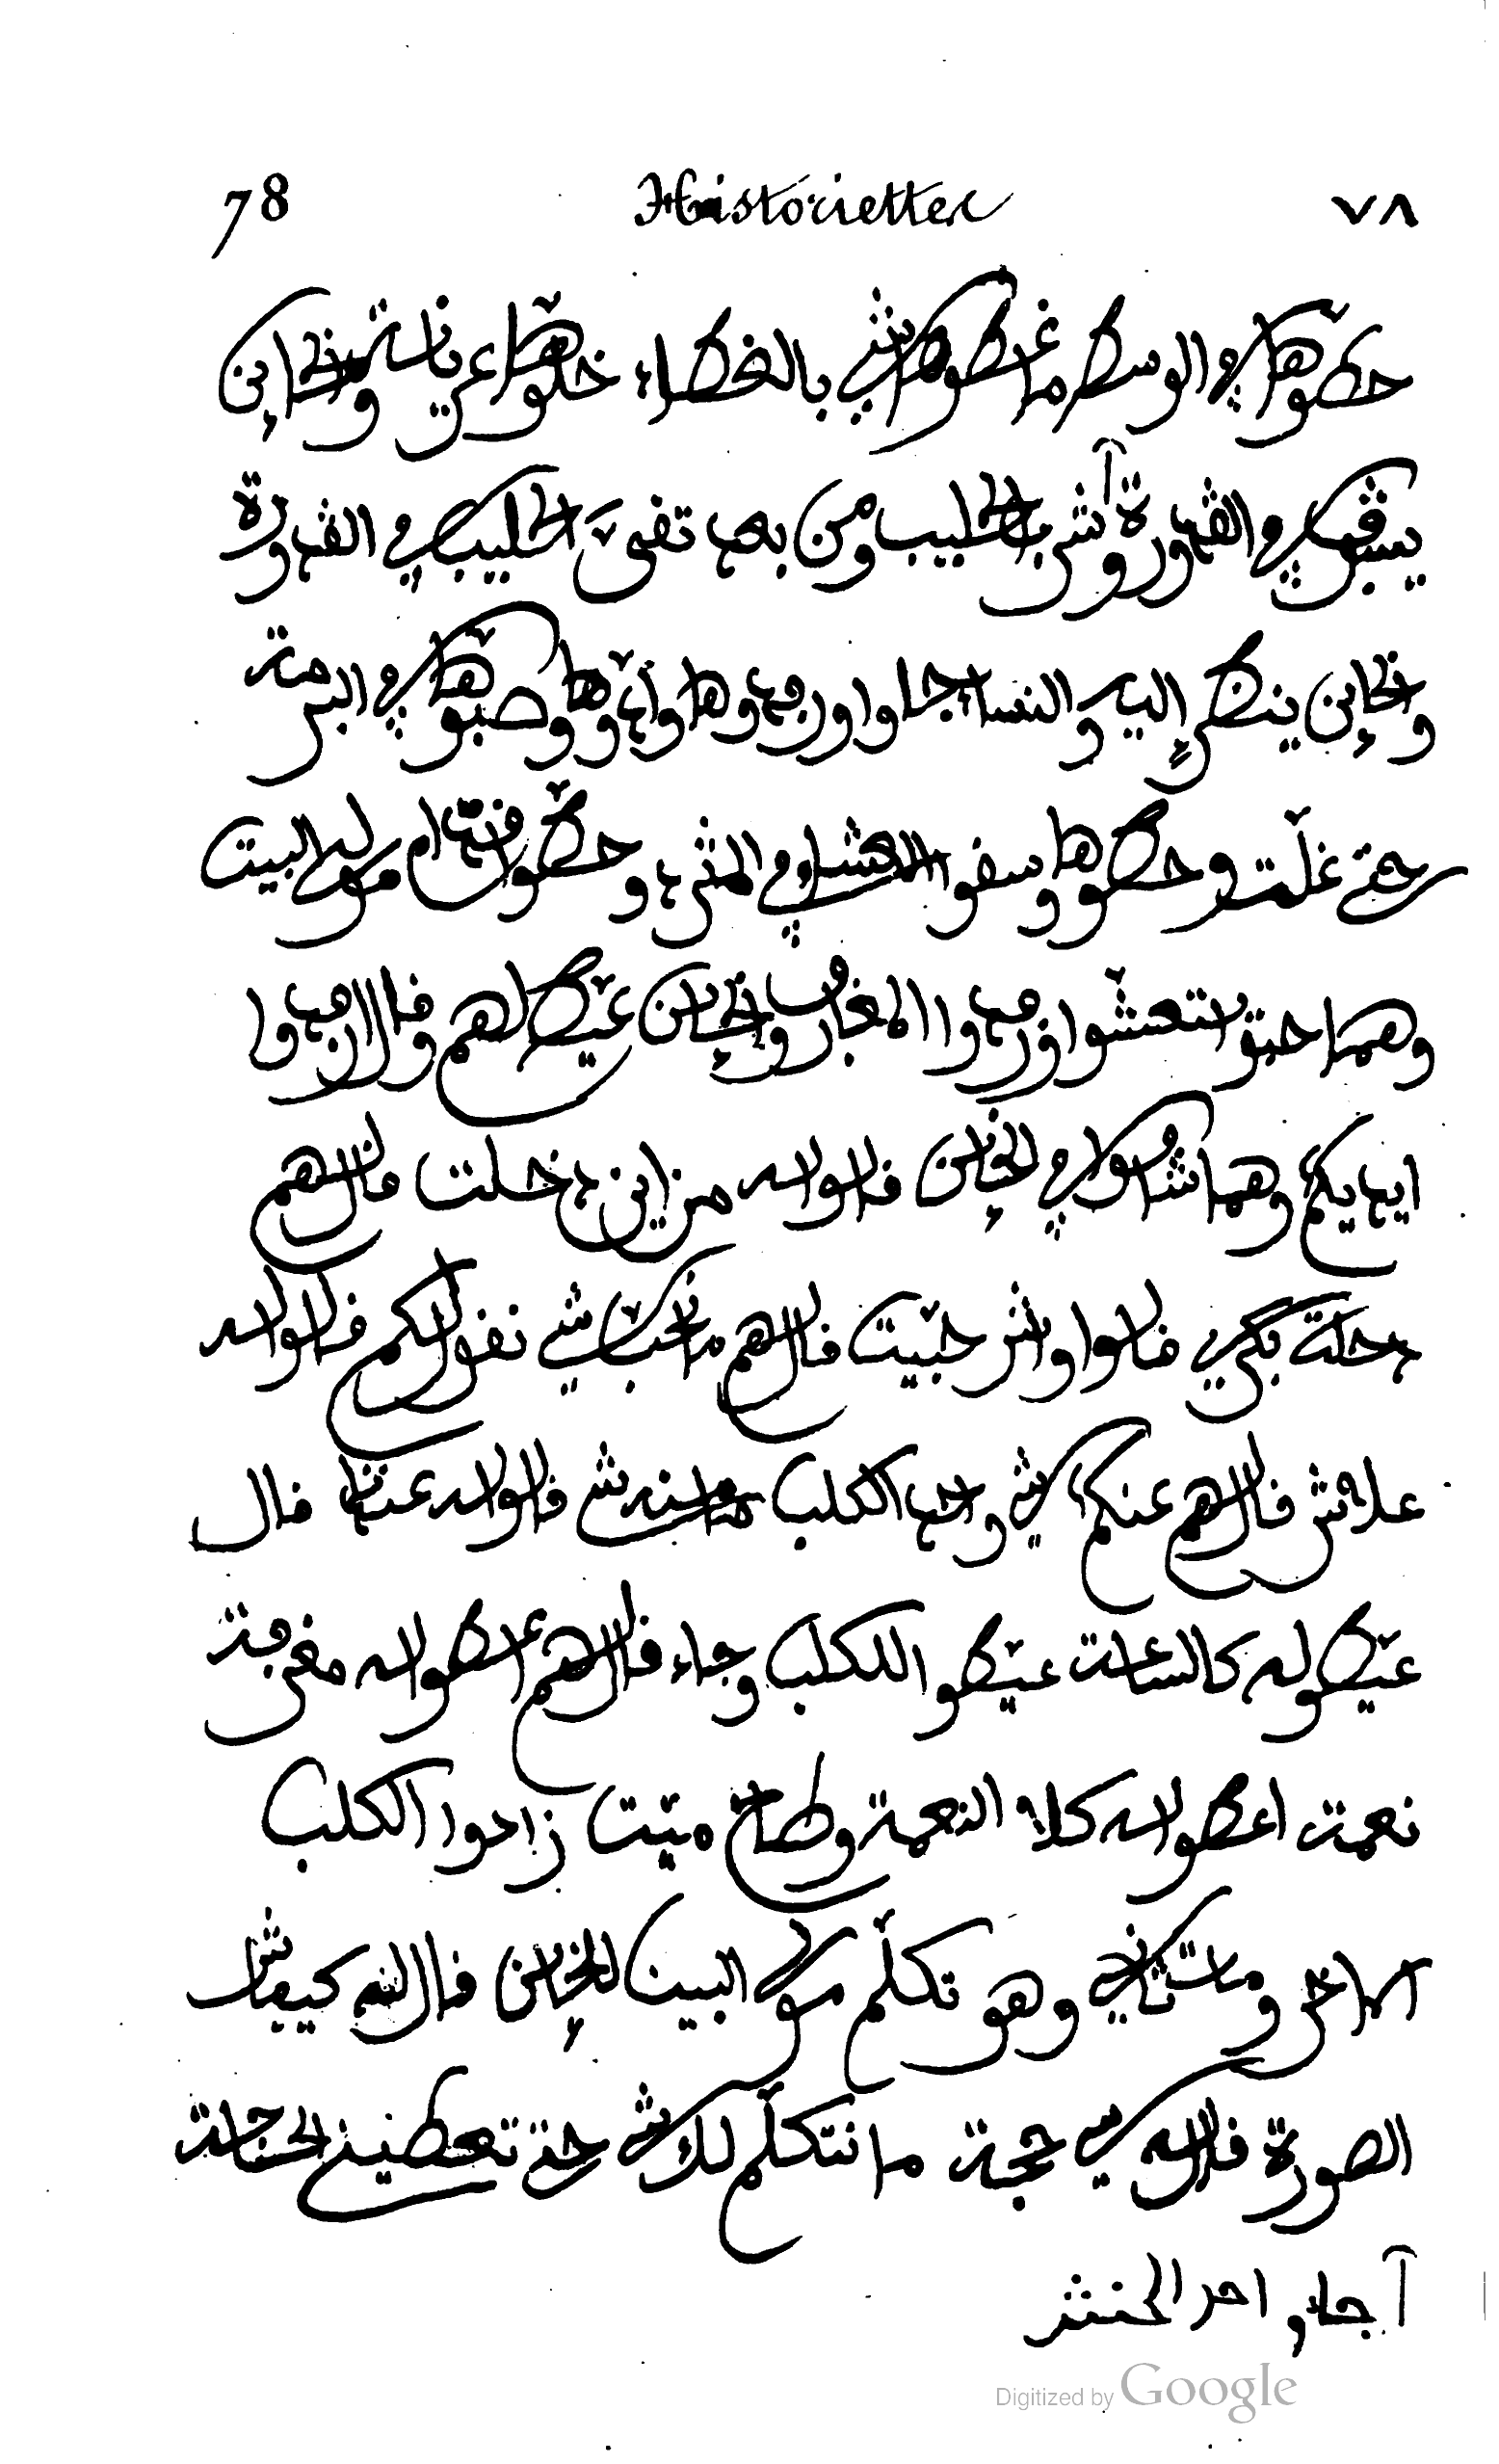 78 Historietter ٧٨
حطّوها في الوسط ما غطوهاشي بالغطاء خلّوها عريانة والخاين
في القدورة وشرب الحليب ومن بعد تقىّ الحليب في القدورة
والخاين ينظر اليه والنساء جاوا ورفدوها وادّوها وصبّوها في البرمة
حتى غلّت وحطّوها وسقوا العشاء في المثرد وحطّوا قدّام مولى البيت
وهما حبّوا يتعشّوا ورفدوا المغارف والخاين عيّط لهم وقال ارفدوا
ايديكم وهما شافوا في الخاين قالوا له من اين دخلت قال لهم
دخلة بكري قالوا واش حبّيت قال لهم ما نحبّاشي نقول لكم قالوا له
علاش قال لهم عندكم شي واحد الكلب قالوا له عندنا قال
عيّطوا له كالساعة عيّطوا للكلب وجاء قال لهم اعطوا له مغرفة
نعمة اعطوا له كلا النعمة وطاح ميّت زادوا الكلب
الاخر ومات ثاني وهو تكلّم مولى البيت للخاين قال له كيفاش
الصورة قال له حجة ما نتكلّم لك شي حتى تعطيني الحاجة
آجاء واحد الحنش
Digitized by Google